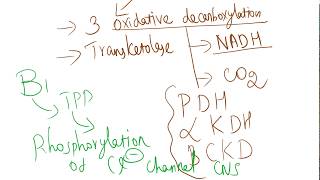 → 3 Oxidative decarboxylation
→ Transketolase
→ NADH
→ CO2
B1
TPP
PDH
α KDH
CKD
Phosphorylation
of Cl⊖ channel CNS